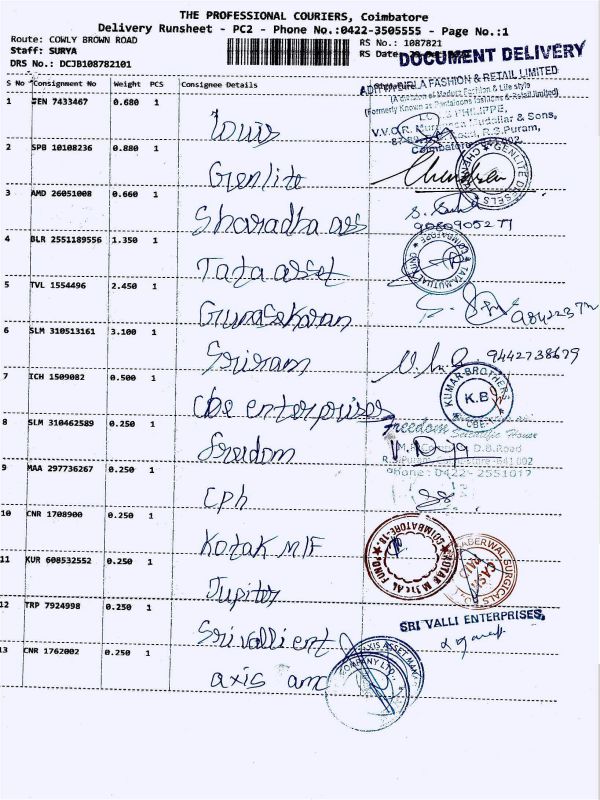 THE PROFESSIONAL COURIERS, Coimbatore
Delivery Runsheet - PC2 - Phone No.:0422-3505555 - Page No.:1
Route: COWLY BROWN ROAD
RS No.: 1087821
Staff: SURYA
RS Date:
DOCUMENT DELIVERY
DRS No.: DCJB108782101
S No Consignment No Weight PCS Consignee Details
ADITYA BIRLA FASHION & RETAIL LIMITED
(A division of Madura Fashion & Life style
(Formerly Known as Pantaloons fashions & Retail limited)
PHILIPPE,
V.V.C.R. Murugesa Mudaliar & Sons,
Road, R.S.Puram,
Coimbatore
1 JEN 7433467 0.680 1
Louis
2 SPB 10108236 0.880 1
Genlite
GENLITE DIESELS
3 AMD 26051008 0.660 1
Sharadha ass
9080905271
4 BLR 2551189556 1.350 1
Tata asset
TATA MUTUAL FUND COIMBATORE
5 TVL 1554496 2.450 1
Gunasekaran
6 SLM 310513161 3.100 1
Sriram
9442738679
7 ICH 1509082 0.500 1
cbe enterprises
KUMAR BROTHERS
K.B
CBE
8 SLM 310462589 0.250 1
freedom
Freedom
Scientific House
D.B.Road
641002
Phone: 0422-2551017
9 MAA 297736267 0.250 1
cph
10 CNR 1708900 0.250 1
Kotak M/F
KOTAK MUTUAL FUND COIMBATORE-18
11 KUR 608532552 0.250 1
Jupiter
SABERWAL SURGICALS
12 TRP 7924998 0.250 1
Sri valli ent
SRI VALLI ENTERPRISES,
13 CNR 1762002 0.250 1
axis amc
AXIS ASSET MAN
COMPANY LTD.